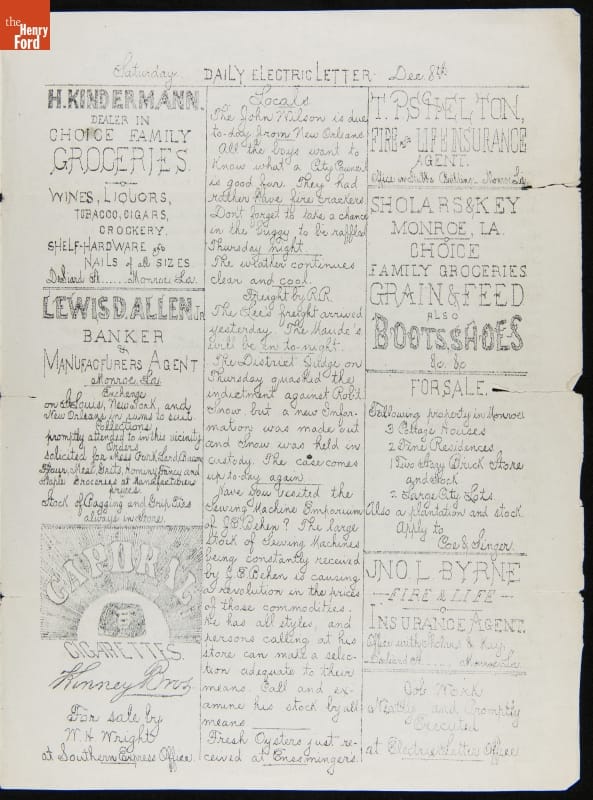 the
Henry
Ford
Saturday. DAILY ELECTRIC LETTER Dec. 8th
H. KINDERMANN.
DEALER IN
CHOICE FAMILY
GROCERIES.
WINES, LIQUORS,
TOBACCO, CIGARS,
CROCKERY.
SHELF-HARDWARE AND
NAILS of all SIZES
DeSiard St...... Monroe La.
LEWIS D. ALLEN, Jr.
BANKER
&
MANUFACTURERS AGENT
Monroe, La.
Exchange
on St Louis, New York, and
New Orleans in sums to suit
Collections
promptly attended to in this vicinity
Orders
solicited for Mess Pork, Lard, Bacon
Flour, Meal, Grits, Hominy, Fancy and
Staple Groceries at Manufacturers
prices.
Stock of Bagging and Grip Ties
always in store.
CAPORAL
CIGARETTES.
Kinney Bros
For sale by
W. H. Wright
at Southern Express Office.
Locals
The John Wilson is due
to-day from New Orleans
All the boys want to
know what a City Owner
is good for. They had
rather have fire crackers.
Dont forget to take a chance
in the Buggy to be raffled
Thursday night.
The weather continues
clear and cool.
Freight by R.R.
The Lee's freight arrived
yesterday. The Maude's
will be in to-night.
The District Judge on
Thursday quashed the
indictment against Robt.
Snow, but a new Infor-
mation was made out
and Snow was held in
custody. The case comes
up to-day again.
Have you visited the
Sewing Machine Emporium
of J. E. Behen? The large
stock of Sewing Machines
being constantly received
by J. E. Behen is causing
a revolution in the prices
of those commodities.
He has all styles, and
persons calling at his
store can make a selec-
tion adequate to their
means. Call and ex-
amine his stock by all
means.
Fresh Oysters just re-
ceived at Enesmingers.
T. P. SHELTON,
FIRE AND LIFE INSURANCE
AGENT.
Office in Monroe La.
SHOLARS & KEY
MONROE, LA.
CHOICE
FAMILY GROCERIES
GRAIN & FEED
ALSO
BOOTS, SHOES
&c. &c
FOR SALE.
Following property in Monroe
3 Cottage Houses
2 Fine Residences
1 Two Story Brick Store
and Stock
2 Large City Lots.
Also a plantation and stock.
Apply to
Coe & Singer.
JNO. L. BYRNE
FIRE & LIFE
INSURANCE AGENT.
Office with Sholars & Key.
DeSiard St...... Monroe La.
Job Work
Neatly and Promptly
Executed
at Electric Letter Office